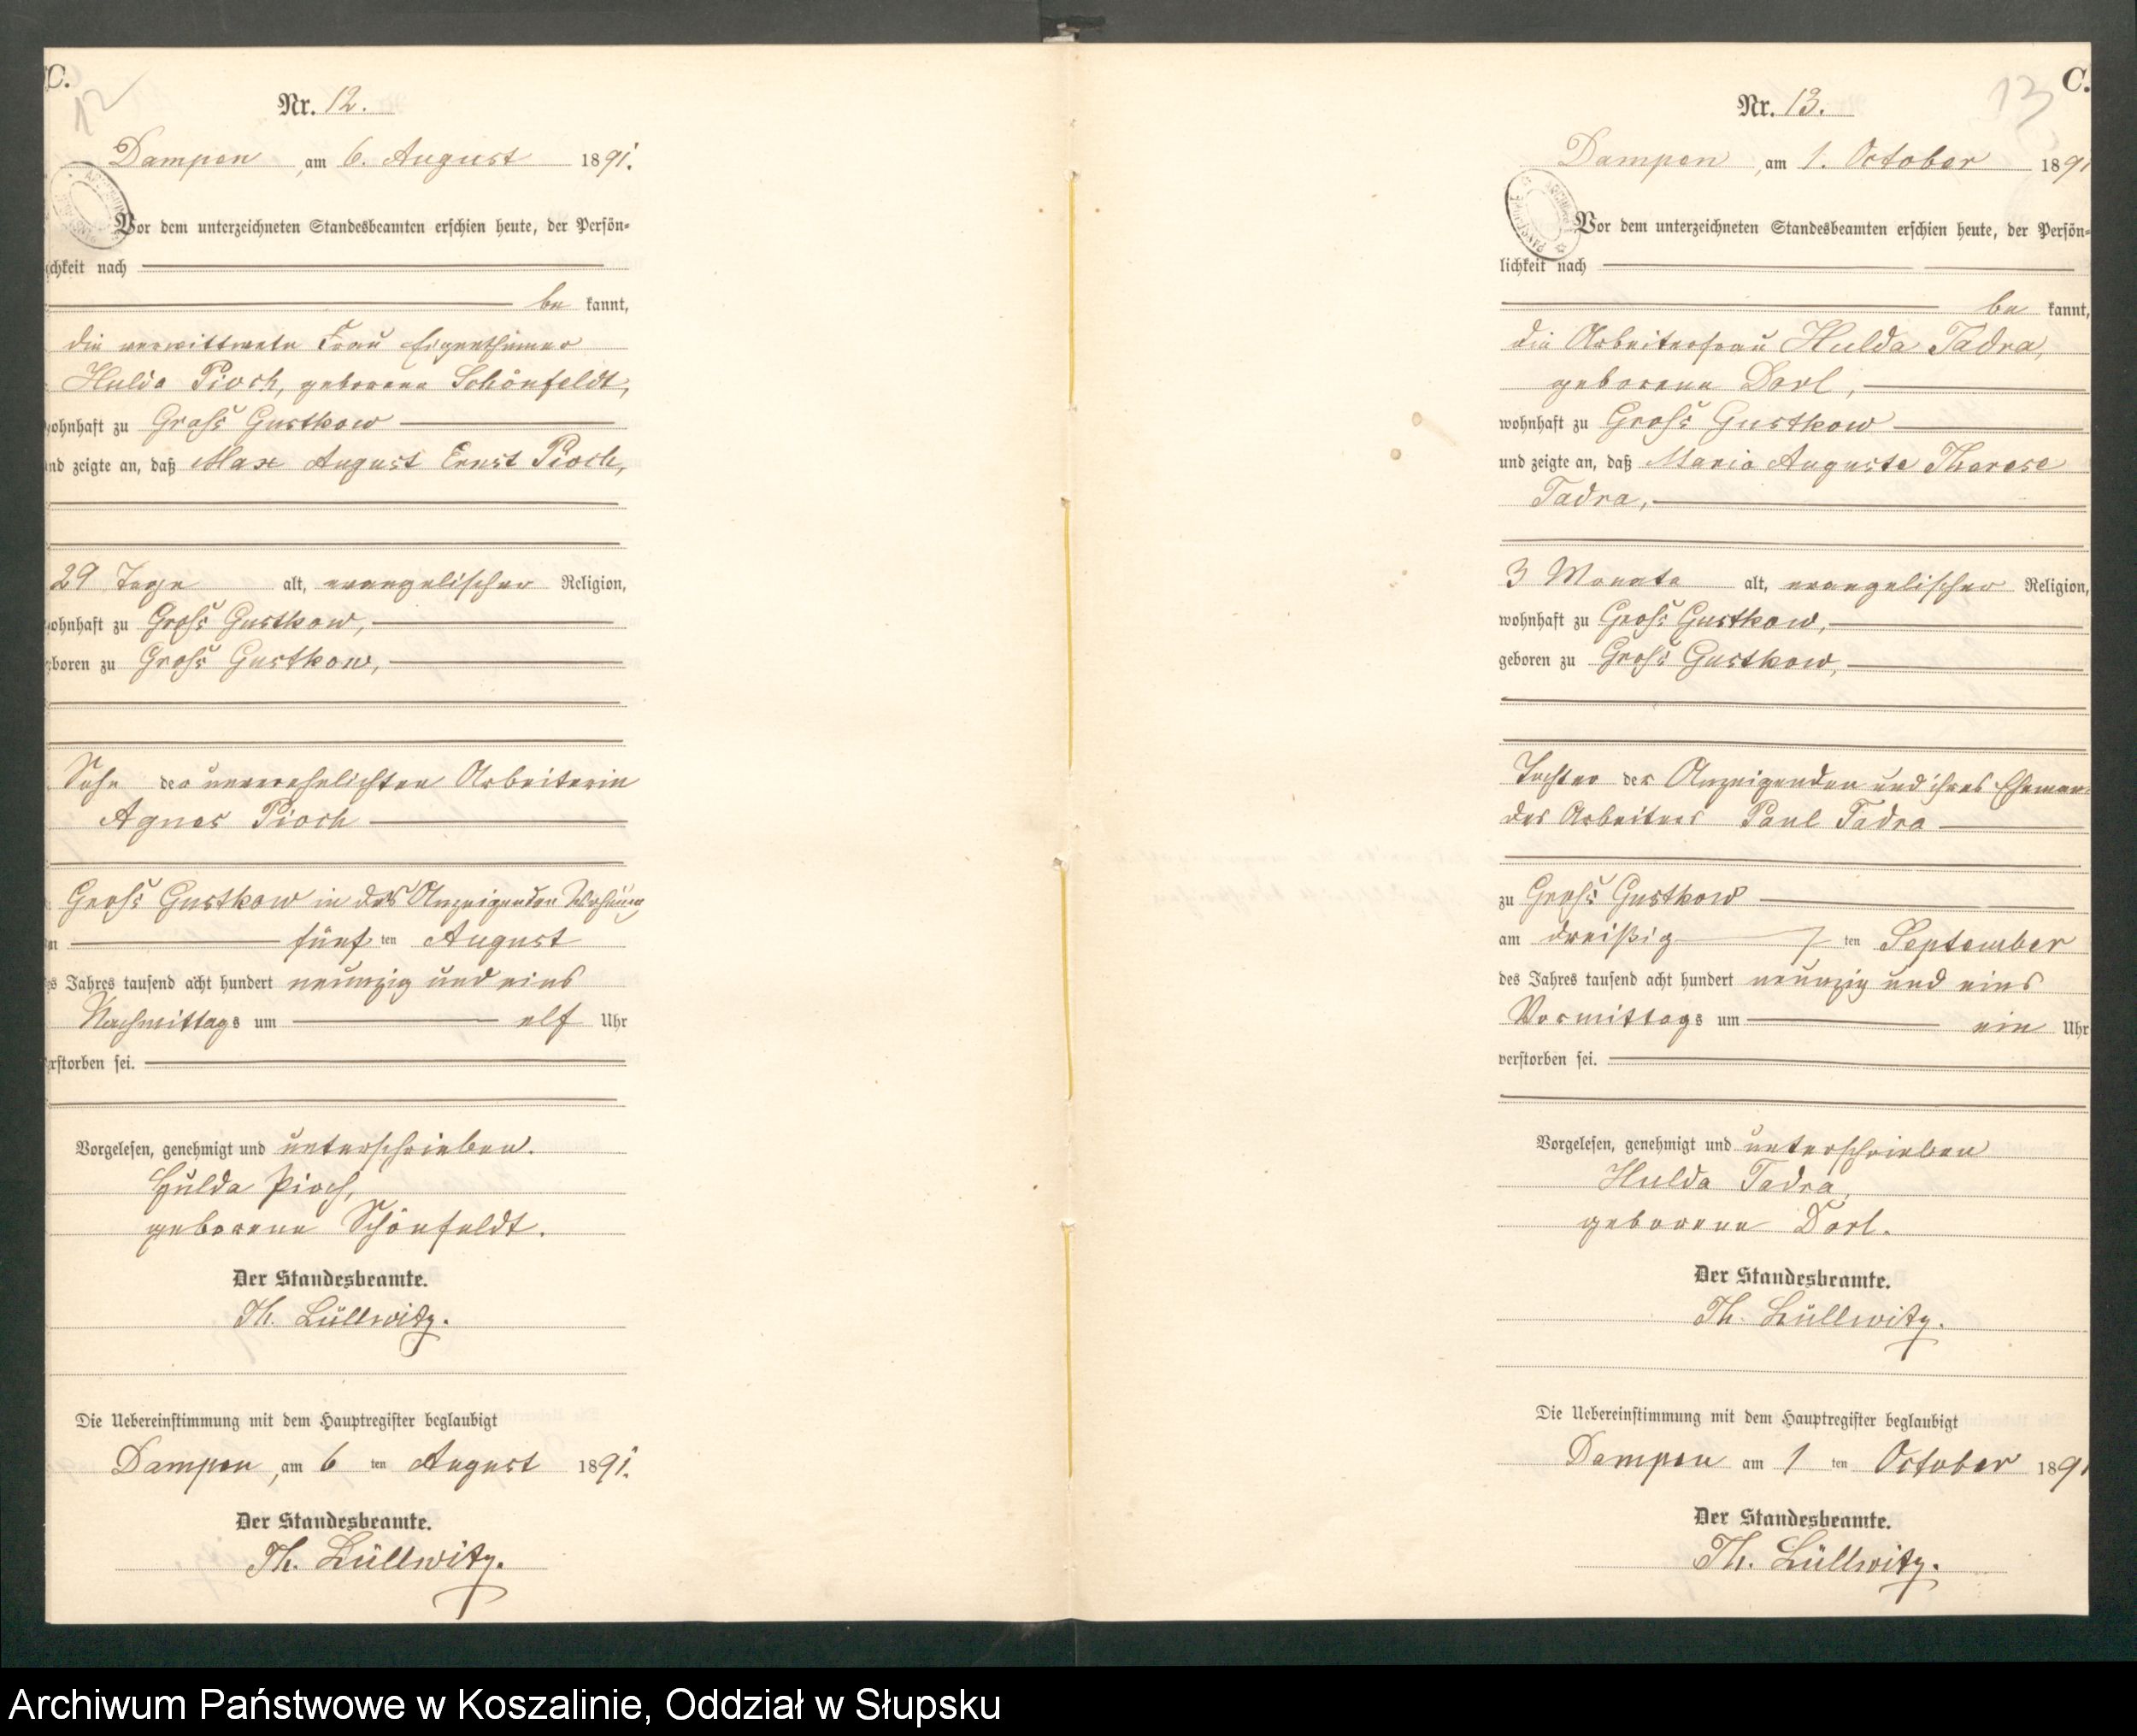 C.
12
Nr. 12.
Dampen, am 6. August 1891.
Vor dem unterzeichneten Standesbeamten erschien heute, der Persön-
chkeit nach
be kannt,
die verwittwete Frau Eigenthümer
Hulda Pioch, geborene Schönfeldt,
ohnhaft zu Groß Gustkow
nd zeigte an, daß Max August Ernst Pioch,
29 Tage alt, evangelischer Religion,
ohnhaft zu Groß Gustkow,
boren zu Groß Gustkow,
Sohn der unverehelichten Arbeiterin
Agnes Pioch
Groß Gustkow in der Anzeigenden Wohnung
m fünf ten August
s Jahres tausend acht hundert neunzig und eins
Nachmittags um elf Uhr
rstorben sei.
Vorgelesen, genehmigt und unterschrieben.
Hulda Pioch,
geborene Schönfeldt.
Der Standesbeamte.
Th. Lüllwitz.
Die Uebereinstimmung mit dem Hauptregister beglaubigt
Dampen, am 6 ten August 1891.
Der Standesbeamte.
Th. Lüllwitz.
C.
13
Nr. 13.
Dampen, am 1. October 1891
Vor dem unterzeichneten Standesbeamten erschien heute, der Persön-
lichkeit nach
be kannt,
die Arbeiterfrau Hulda Tadra,
geborene Dorl,
wohnhaft zu Groß Gustkow
und zeigte an, daß Maria Auguste Therese
Tadra,
3 Monate alt, evangelischer Religion,
wohnhaft zu Groß Gustkow,
geboren zu Groß Gustkow,
Tochter der Anzeigenden und ihres Eheman
des Arbeiters Paul Tadra
zu Groß Gustkow
am dreißig ten September
des Jahres tausend acht hundert neunzig und eins
Vormittags um ein Uhr
verstorben sei.
Vorgelesen, genehmigt und unterschrieben
Hulda Tadra,
geborene Dorl.
Der Standesbeamte.
Th. Lüllwitz.
Die Uebereinstimmung mit dem Hauptregister beglaubigt
Dampen am 1 ten October 1891
Der Standesbeamte.
Th. Lüllwitz.
Archiwum Państwowe w Koszalinie, Oddział w Słupsku